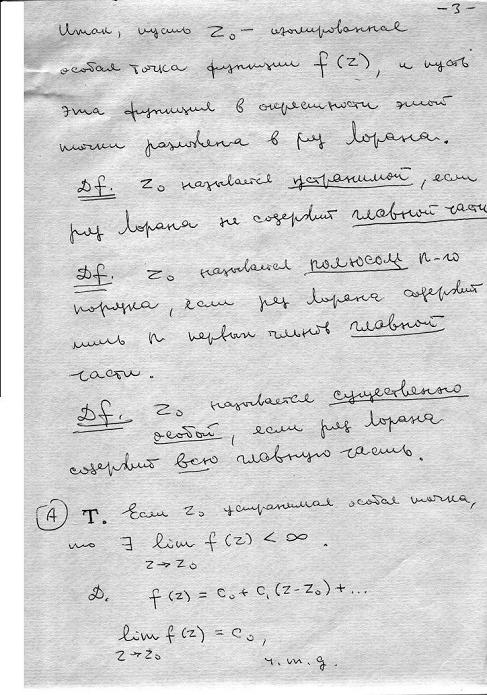 -3-
Итак, пусть z₀ – изолированная
особая точка функции f(z), и пусть
эта функция в окрестности этой
точки разложена в ряд Лорана.
Df. z₀ называется устранимой, если
ряд Лорана не содержит главной части
Df. z₀ называется полюсом n-го
порядка, если ряд Лорана содержит
лишь n первых членов главной
части.
Df. z₀ называется существенно
особой, если ряд Лорана
содержит всю главную часть.
(A) Т. Если z₀ устранимая особая точка,
то ∃ lim f(z) < ∞.
z→z₀
D. f(z) = c₀ + c₁(z-z₀) + ...
lim f(z) = c₀,
z→z₀
ч.т.д.